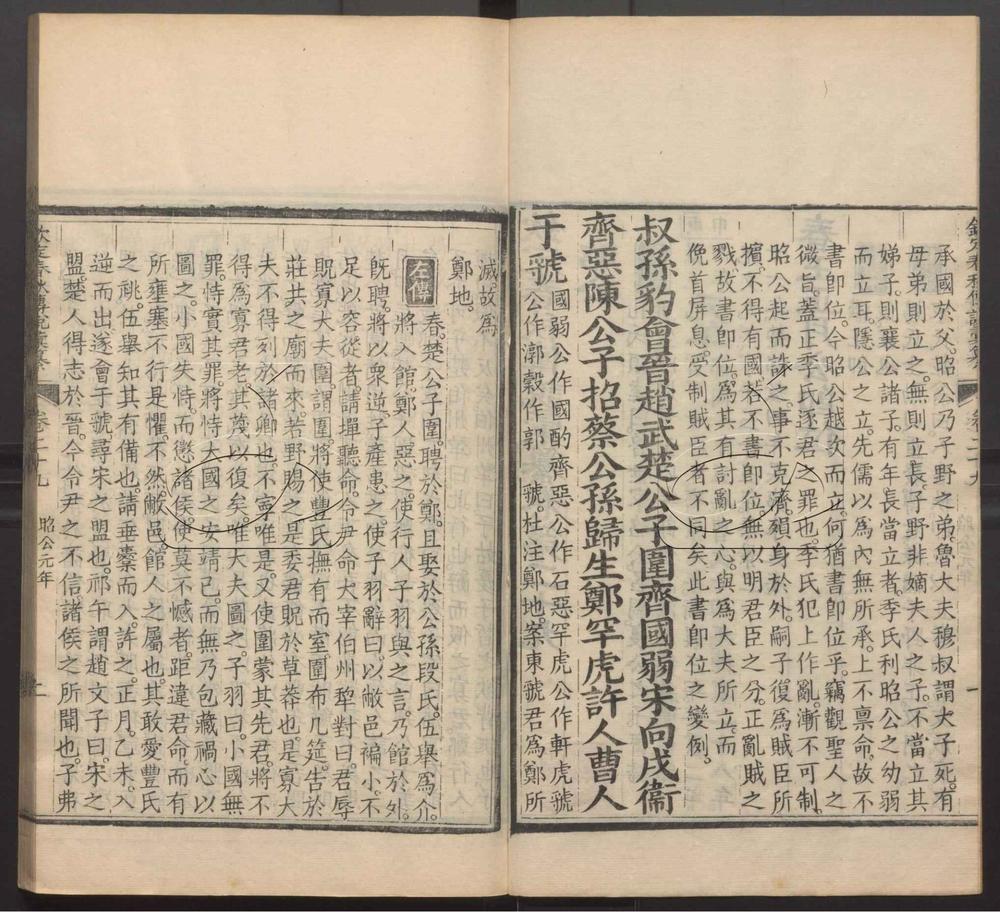 承國於父。昭公乃子野之弟。魯大夫穆叔謂大子死。有
母弟則立之。無則立長。子野非嫡夫人之子。不當立其
娣子。則襄公諸子。有年長當立者。季氏利昭公之幼弱
而立耳。隱公之立。先儒以為內無所承。上不禀命。故不
書即位。今昭公越次而立。何猶書即位乎。竊觀聖人之
微旨。蓋正季氏逐君之罪也。季氏犯上作亂。漸不可制
昭公起而誅之。事不克濟。殞身於外。嗣子復為賊臣所
擯。不得有國。若不書即位。無以明君臣之分。正亂賊之
戮。故書即位。為其有討亂之心。與為大夫所立。而
俛首屏息。受制賊臣者不同矣。此書即位之變例。
叔孫豹會晉趙武楚公子圍齊國弱宋向戌衞
齊惡陳公子招蔡公孫歸生鄭罕虎許人曹人
于虢
國弱公作國酌齊惡公作石惡罕虎公作軒虎虢
公作漷穀作郭 虢。杜注鄭地。案東虢君為鄭所
滅。故為
鄭地。
左傳 春。楚公子圍。聘於鄭。且娶於公孫段氏。伍舉為介。
將入館。鄭人惡之。使行人子羽與之言。乃館於外。
旣聘。將以衆逆。子產患之。使子羽辭曰。以敝邑褊小。不
足以容從者。請墠聽命。令尹命大宰伯州犂對曰。君辱
貺寡大夫圍。謂圍。將使豐氏撫有而室。圍布几筵。告於
莊共之廟而來。若野賜之。是委君貺於草莽也。是寡大
夫不得列於諸卿也。不寧唯是。又使圍蒙其先君。將不
得為寡君老。其蔑以復矣。唯大夫圖之。子羽曰。小國無
罪。恃實其罪。將恃大國之安靖已。而無乃包藏禍心以
圖之。小國失恃。而懲諸侯。使莫不憾者。距違君命。而有
所壅塞不行是懼。不然。敝邑。館人之屬也。其敢愛豐氏
之祧。伍舉知其有備也。請垂櫜而入。許之。正月。乙未。入
逆而出。遂會于虢。尋宋之盟也。祁午謂趙文子曰。宋之
盟。楚人得志於晉。今令尹之不信。諸侯之所聞也。子弗
卷二十九
昭公元年